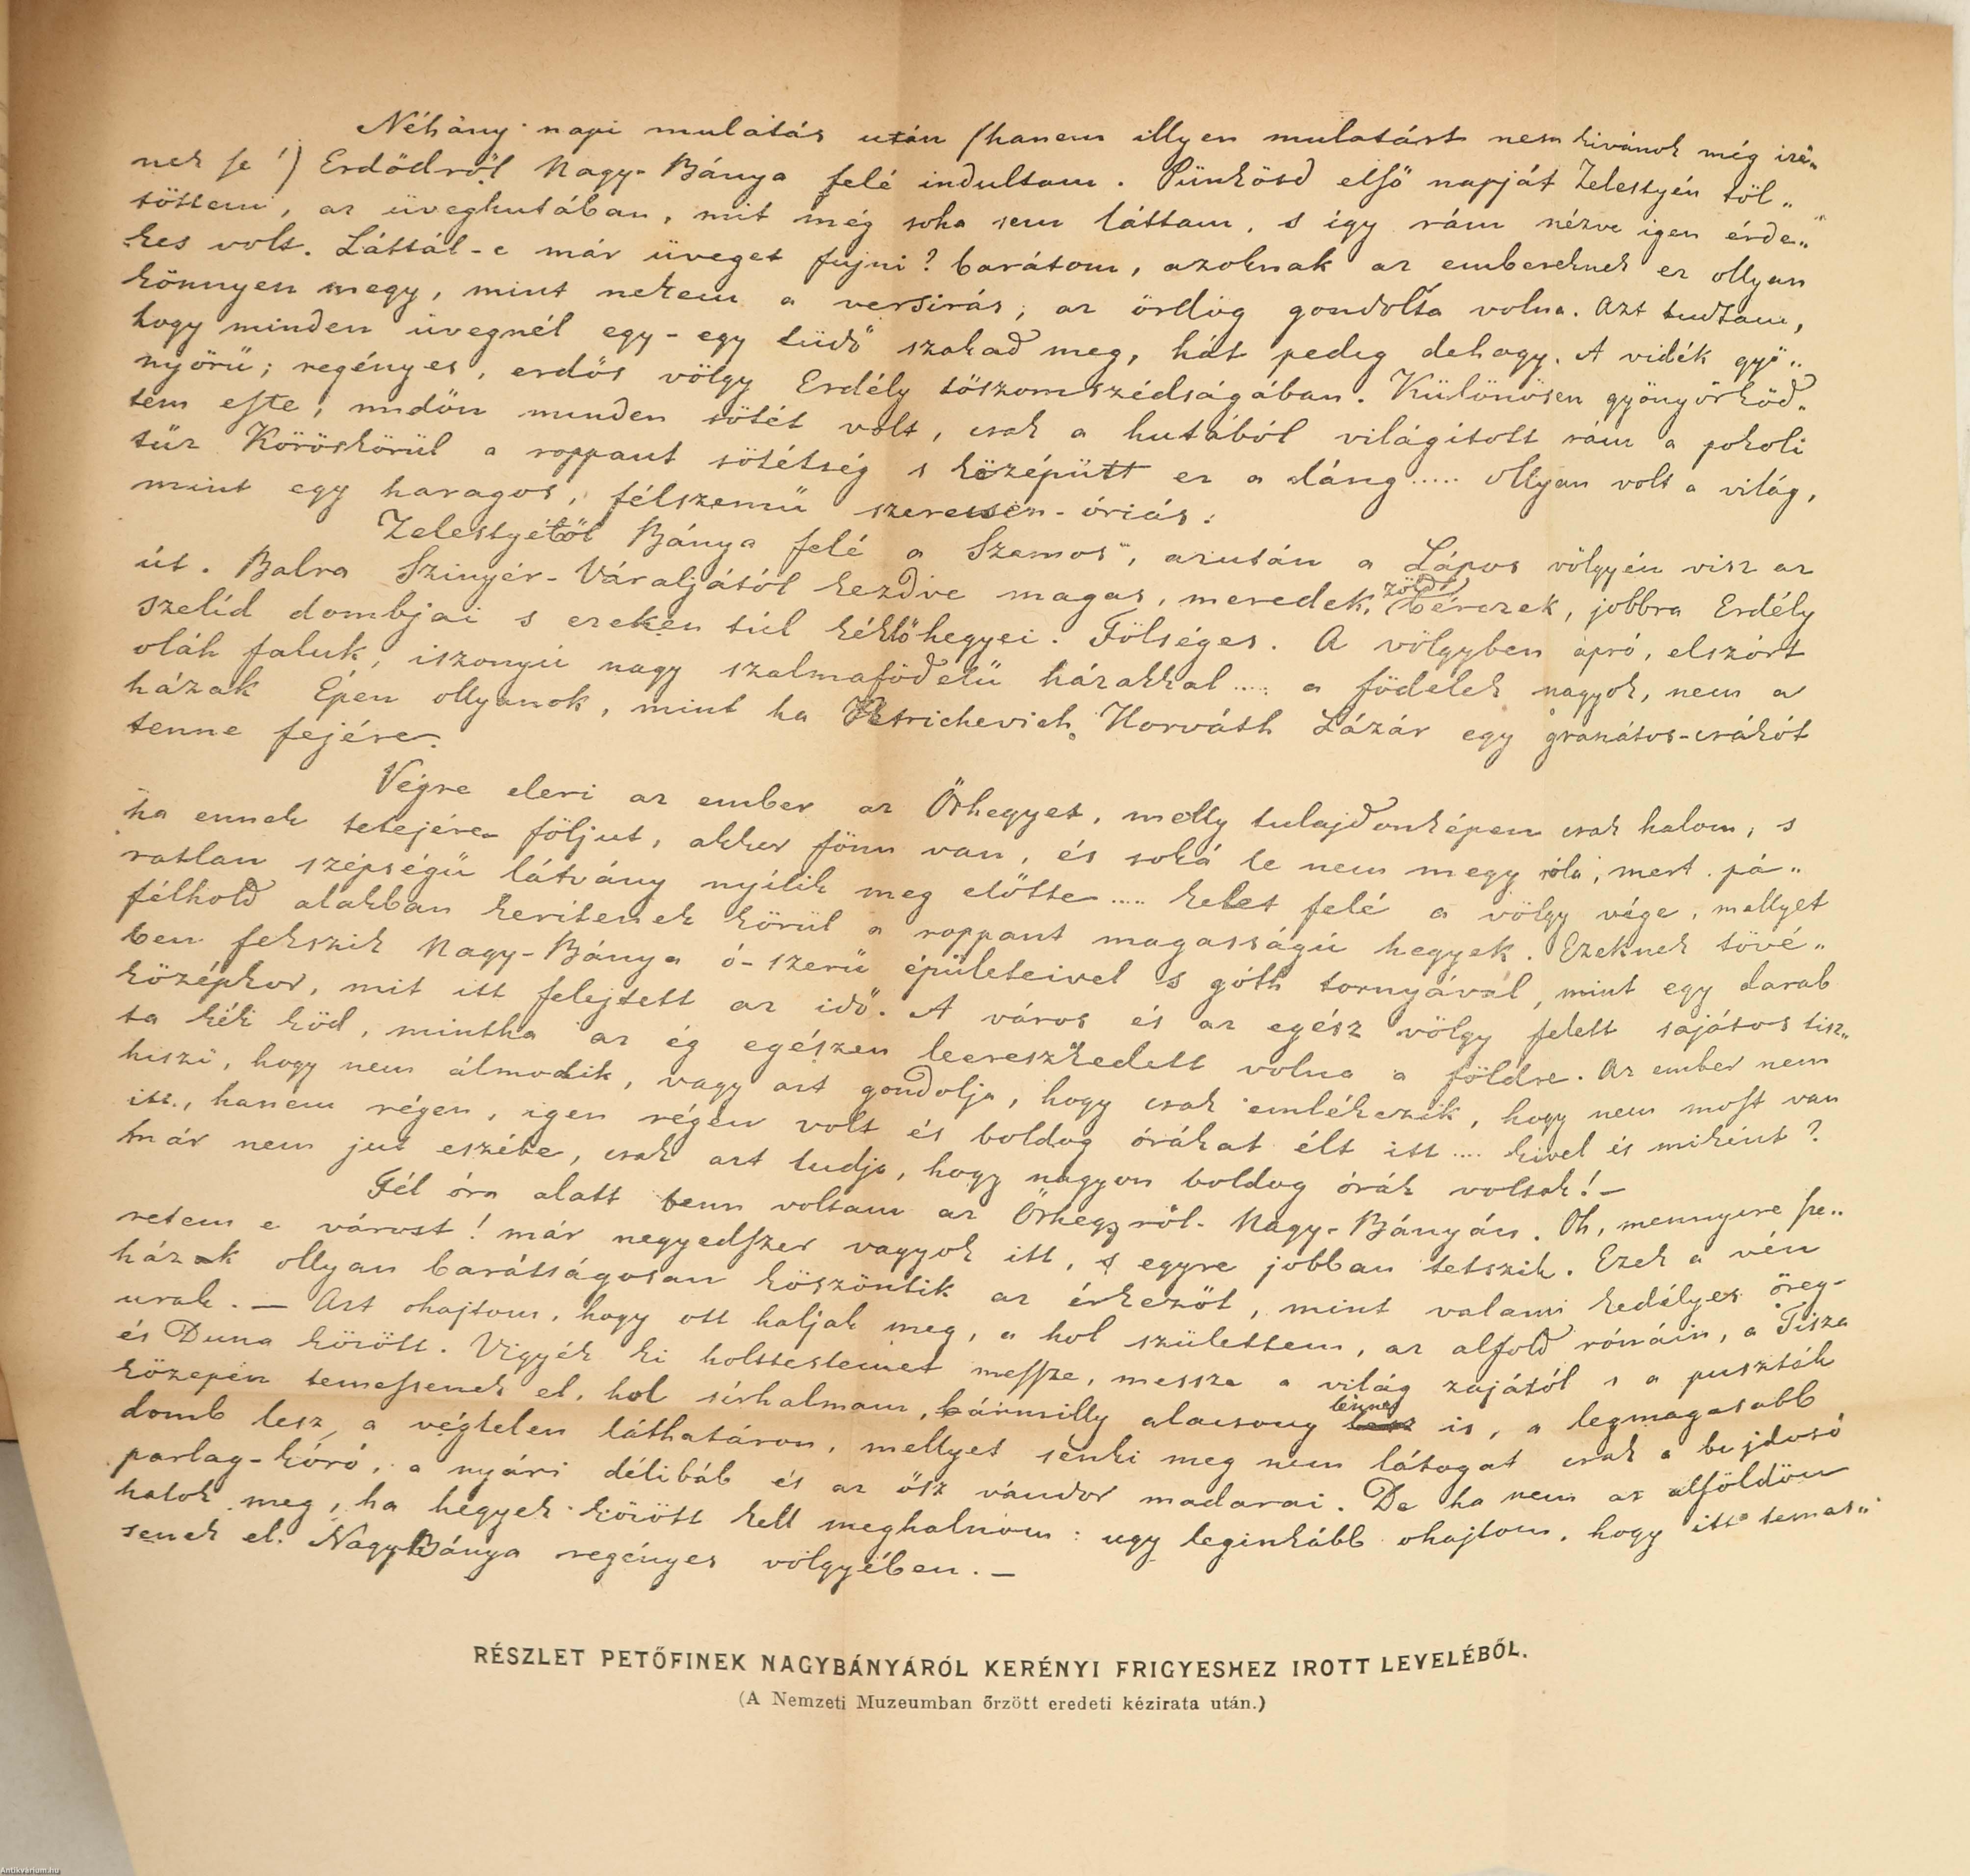 Néhány napi mulatás után (hanem illyen mulatást nem kivánok még
nek se!) Erdődről Nagy-Bánya felé indultam. Pünkösd első napját Zelestyén töl„
töttem, az üveghutában, mit még soha sem láttam, s igy rám nézve igen érde„
kes volt. Láttál-e már üveget fujni? barátom, azoknak az embereknek ez ollyan
könnyen megy, mint nekem a versirás; az ördög gondolta volna. Azt tudtam,
hogy minden üvegnél egy-egy tüdő szakad meg, hát pedig dehogy. A vidék gyö„
nyörü; regényes, erdős völgy Erdély tőszomszédságában. Különösen gyönyörköd„
tem este, midőn minden sötét volt, csak a hutából világított rám a pokoli
tűz Köröskörül a roppant sötétség s középütt ez a láng..... ollyan volt a világ,
mint egy haragos, félszemü szerecsen-óriás.
Zelestyétől Bánya felé a Szamos, azután a Lápos völgyén visz az
út. Balra Szinyér-Váraljától kezdve magas, meredek, zöld bérczek, jobbra Erdély
szelíd dombjai s ezeken túl kéklő hegyei. Fölséges. A völgyben apró, elszórt
oláh faluk, iszonyú nagy szalmafödelü házakkal.... a födelek nagyok, nem a
házak Épen ollyanok, mint ha Petrichevich Horváth Lázár egy gránátos-csákót
tenne fejére.
Végre eléri az ember az Őrhegyet, melly tulajdonképen csak halom; s
ha ennek tetejére följut, akkor fönn van, és soká le nem megy róla, mert pá„
ratlan szépségü látvány nyílik meg előtte.... kelet felé a völgy vége, mellyet
félhold alakban kerítenek körül a roppant magasságú hegyek. Ezeknek tövé„
ben fekszik Nagy-Bánya ó-szerü épületeivel s góth tornyával, mint egy darab
középkor, mit itt felejtett az idő. A város és az egész völgy felett sajátos tisz„
ta kék köd, mintha az ég egészen leereszkedett volna a földre. Az ember nem
hiszi, hogy nem álmodik, vagy azt gondolja, hogy csak emlékezik, hogy nem most van
itt, hanem régen, igen régen volt és boldog órákat élt itt.... kivel és miként?
már nem jut eszébe, csak azt tudja, hogy nagyon boldog órák voltak! —
Fél óra alatt benn voltam az Őrhegyről Nagy-Bányán. Oh, mennyire sze„
retem e várost! már negyedszer vagyok itt, s egyre jobban tetszik. Ezek a vén
házak ollyan barátságosan köszöntik az érkezőt, mint valami kedélyes öreg-
urak. — Azt ohajtom, hogy ott haljak meg, a hol születtem, az alföld rónáin, a Tisza
és Duna között. Vigyék ki holttestemet messze, messze a világ zajától s a puszták
közepén temessenek el, hol sírhalmam, bármilly alacsony lenne is, a legmagasabb
domb lesz a végtelen láthatáron, mellyet senki meg nem látogat csak a bujdosó
parlag-kóró, a nyári délibáb és az ősz vándor madarai. De ha nem az alföldön
halok meg, ha hegyek között kell meghalnom: ugy leginkább ohajtom, hogy itt temes„
senek el Nagy-Bánya regényes völgyében. —
RÉSZLET PETŐFINEK NAGYBÁNYÁRÓL KERÉNYI FRIGYESHEZ IROTT LEVELÉBŐL.
(A Nemzeti Muzeumban őrzött eredeti kézirata után.)
Antikvárium.hu